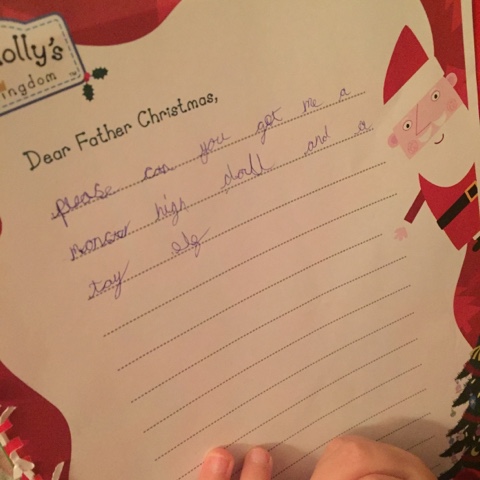 olly's
ingdom
Dear Father Christmas,
please can you get me a
monser high doll and a
toy elf